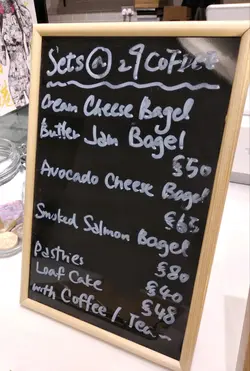 Sets @ 29 COFFEE
Cream Cheese Bagel
Butter Jam Bagel
$50
Avocado Cheese Bagel
$65
Smoked Salmon Bagel
$80
Pastries
$40
Loaf Cake
$48
with Coffee / Tea